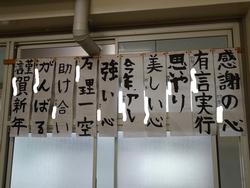 感謝の心
有言実行
思やり
美しい心
強い心
万理一空
助け合い
がんばる
謹賀新年